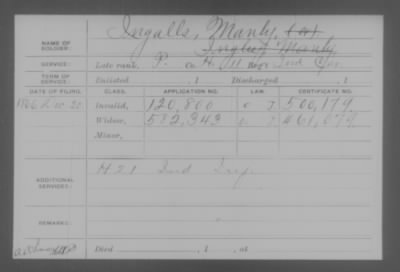 NAME OF SOLDIER: Ingalls, Manly,
Manly
SERVICE: Late rank, P. Co. H, Reg't Ind
TERM OF SERVICE: Enlisted , 1 Discharged , 1
DATE OF FILING. CLASS. APPLICATION NO. LAW. CERTIFICATE NO.
1866 Dec. 20 Invalid, 120,800 500,179
Widow, 582,343 461,079
Minor,
ADDITIONAL SERVICES: H 21 Ind Inf
REMARKS:
Died , 1 , at